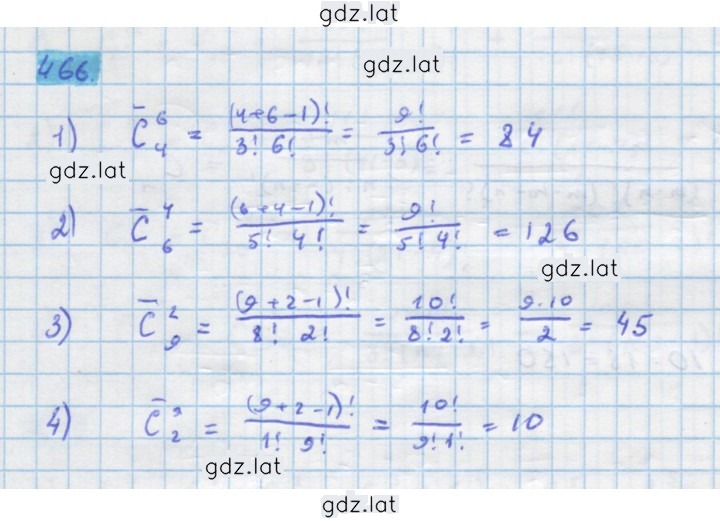 gdz.lat
466
gdz.lat
1) C̄₄⁶ = (4+6-1)! / 3! 6! = 9! / 3! 6! = 84
gdz.lat
2) C̄₆⁴ = (6+4-1)! / 5! 4! = 9! / 5! 4! = 126
gdz.lat
3) C̄₉² = (9+2-1)! / 8! 2! = 10! / 8! 2! = 9·10 / 2 = 45
4) C̄₂⁹ = (9+2-1)! / 1! 9! = 10! / 9! 1! = 10
gdz.lat
gdz.lat